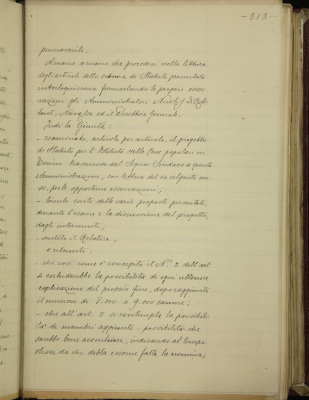 -313-
primavorile.
A mano a mano che procedesi nella lettura
degli articoli dello schema di Statuto presentato
interloquiscono formulando le proprie osser-
vazioni gli Amministratori
ed il Direttore Generale.
Indi la Giunta:
- esaminato, articolo per articolo, il progetto
di Statuto per l'Istituto delle Case popolari in
Torino trasmesso dal Signor Sindaco a questa
Amministrazione, con lettera del 20 volgente me-
se, per le opportune osservazioni;
- tenuto conto delle varie proposte presentate,
durante l'esame e la discussione del progetto,
dagli intervenuti,
- sentito il Relatore;
o ritenuto:
- che così come è concepito il N.ro 2 dell'art.
si escluderebbe la possibilità di ogni ulteriore
esplicazione del proprio fine, dopo raggiunto
il numero di 8.000 a 9.000 camere;
- che all'art. 5 si contempla la possibili-
tà di membri aggiunti - possibilità che
sarebbe bene accentuare, indicando al tempo
stesso da chi debba esserne fatta la nomina;